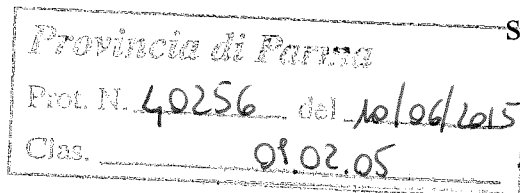 Provincia di Parma
Prot. N. 40256 del 10/06/2015
Clas. 09.02.05